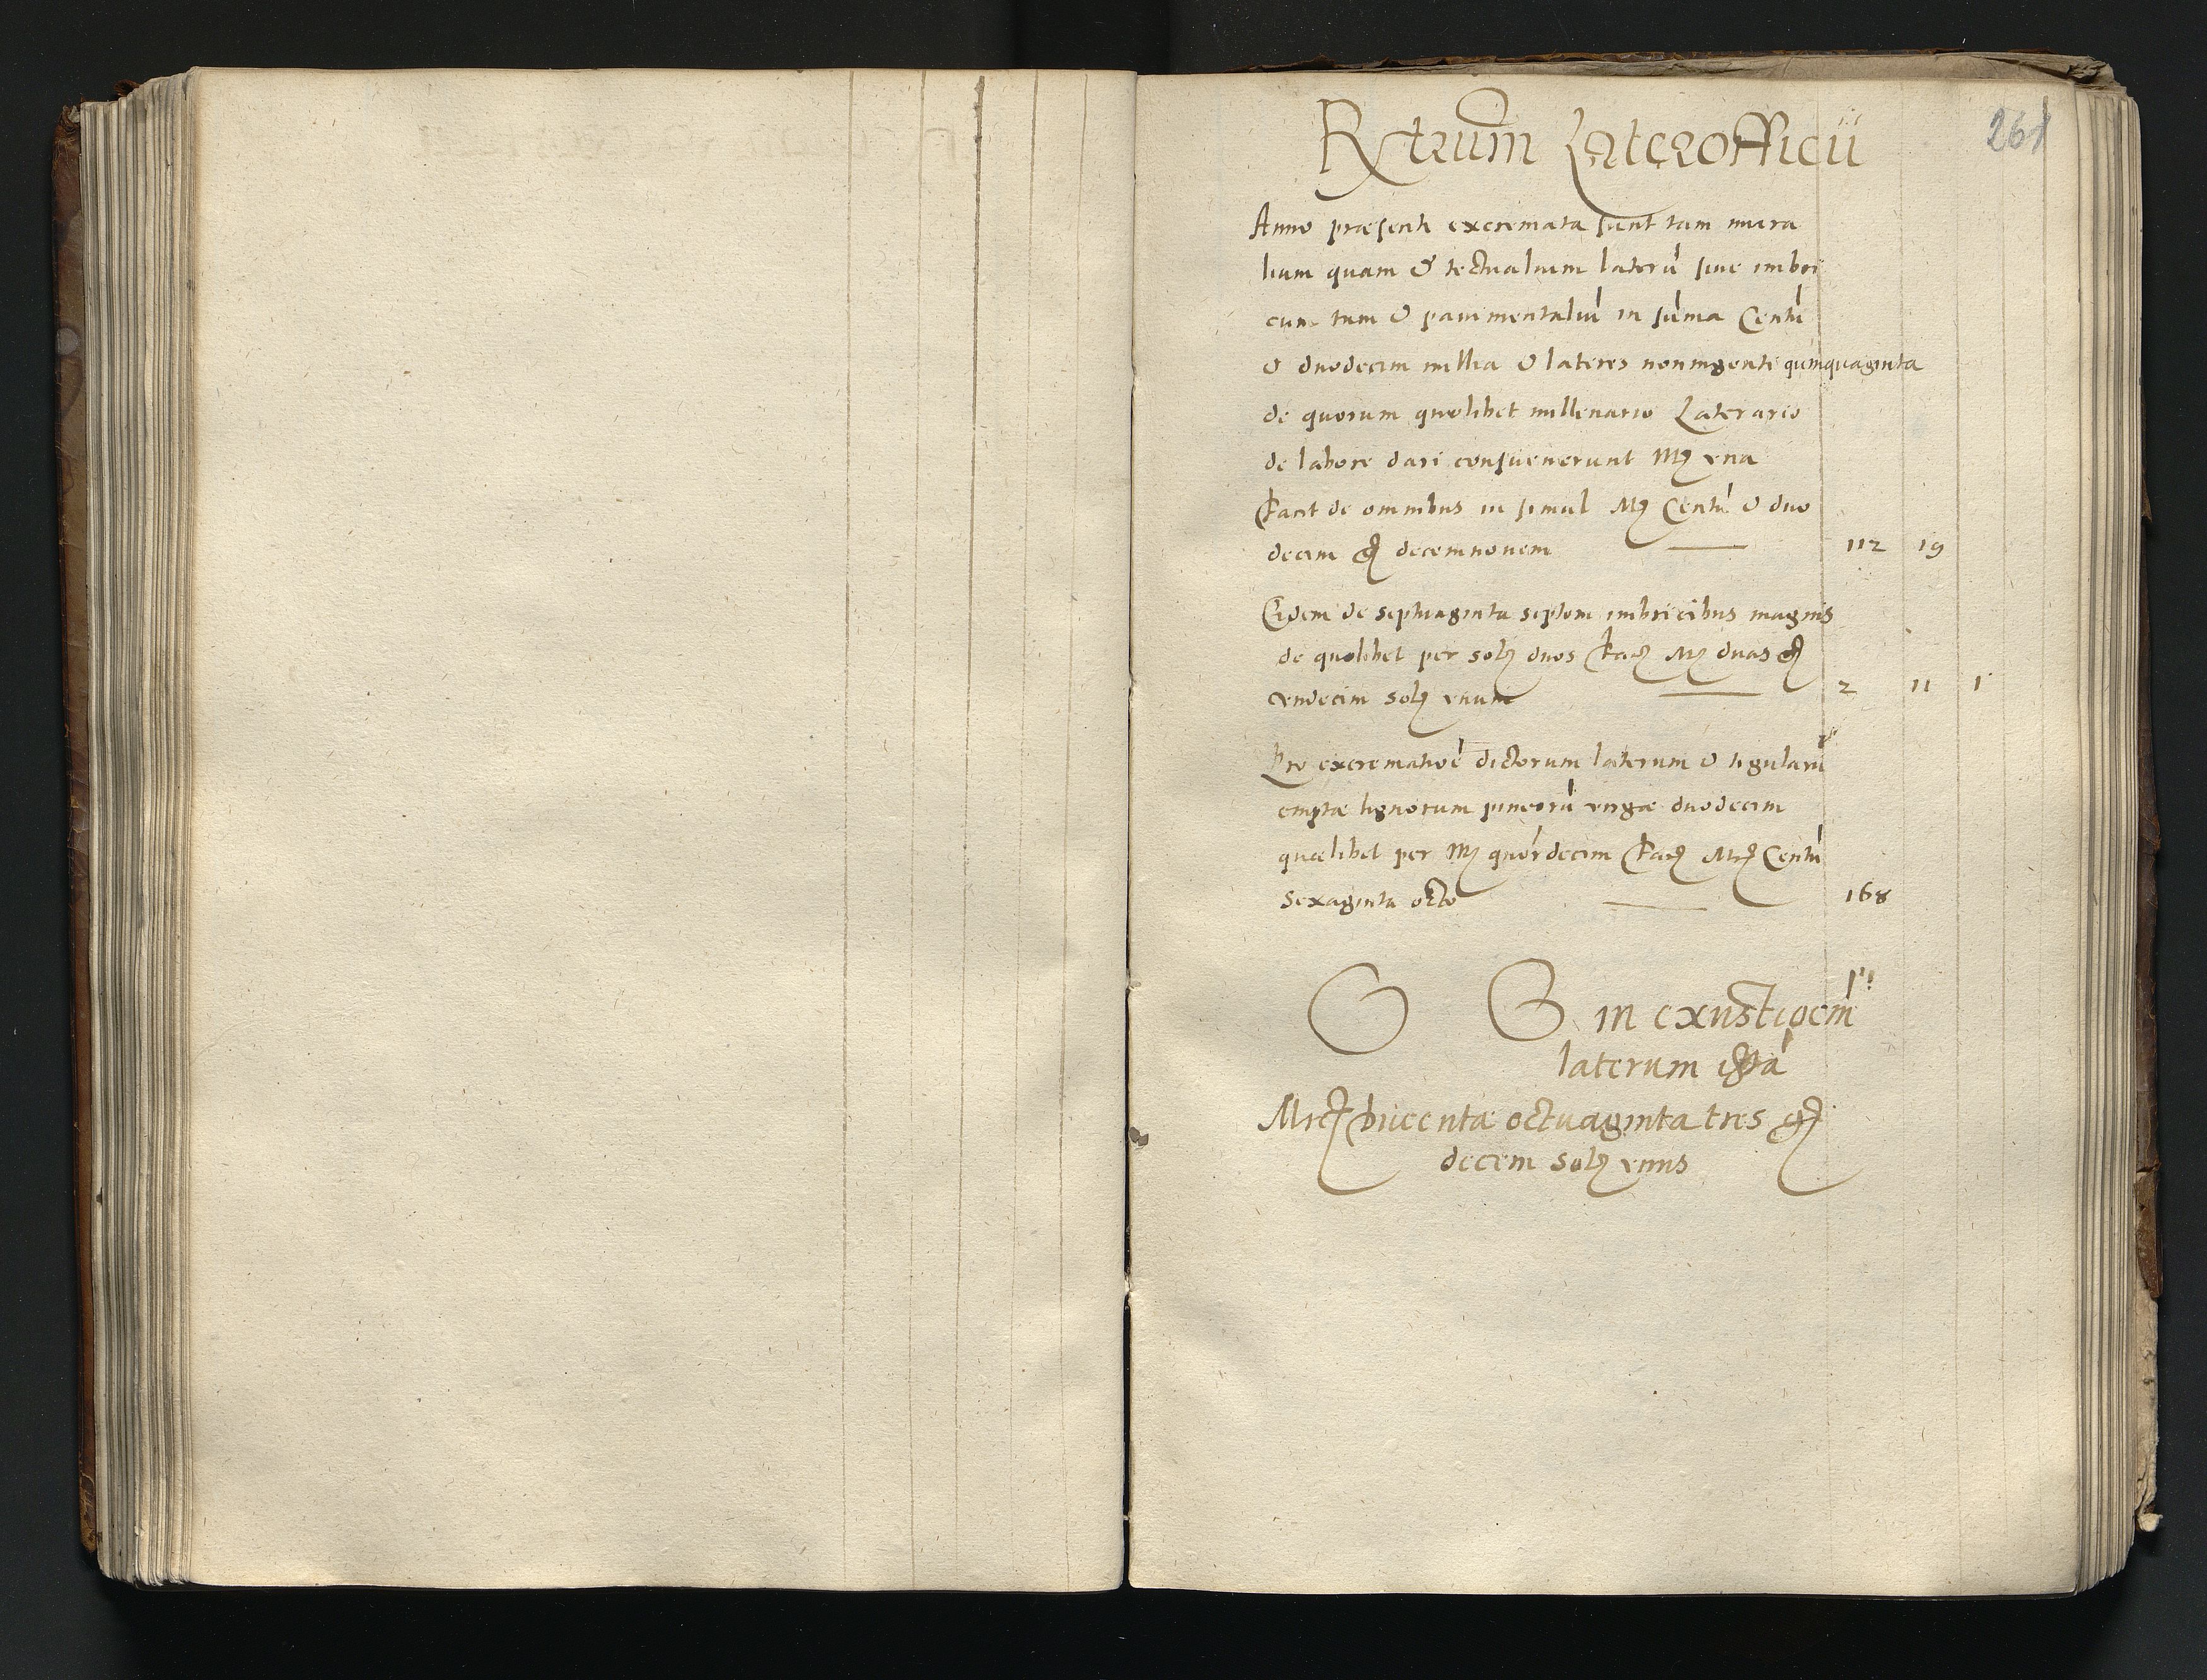 261
Rtrum Laterofficii
Anno præsenti excremata sunt tam mura
lium quam & tectualium laterū siue imbri
cum tum & pauimentaliū in sūma Centū
& duodecim millia & lateres noningenti quinquaginta
de quorum quolibet millenario Laterario
de labore dari consueuerunt Mr vna
Facit de omnibus in simul Mr Centū & duo
decim gr decemnouem — 112 19
Eidem de septuaginta septem imbricibus magnis
de quolibet per solz duos Facz Mr duas gr
vndecim solz vnum — 2 11 1
Pro excrematioē dictorum laterum & tigularū
emptæ lignorum pineorū virgæ duodecim
quælibet per Mr quordecim Facz Mrc Centū
Sexaginta octo — 168
in exustioem
laterum
Mrc ducentæ octuaginta tres gr
decem solz vnus